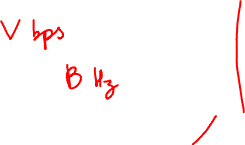 V bps
B Hz